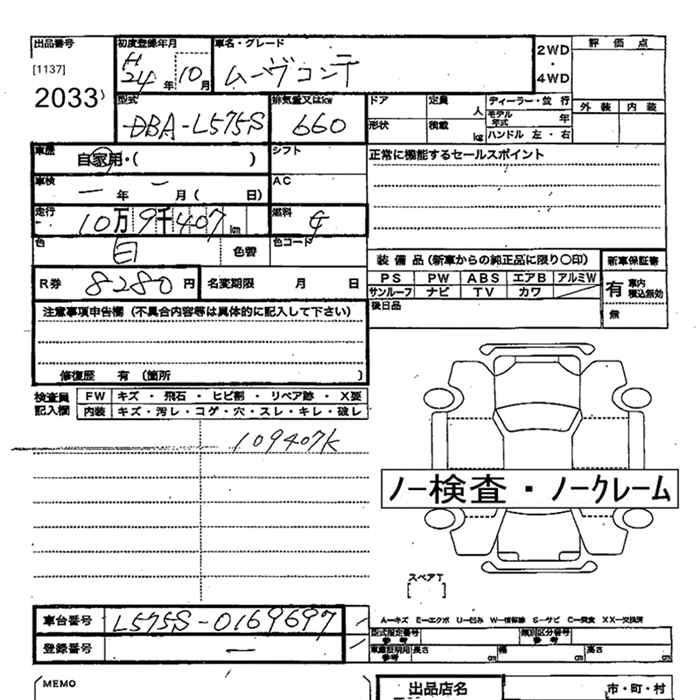 出品番号 初度登録年月 車名・グレード 2WD・4WD 評価点
[1137] H24年10月 ムーヴコンテ
2033
型式 排気量又はkw ドア 定員 人 ディーラー・並行 外装 内装
DBA-L575S 660 形状 積載 kg モデル年式 年
ハンドル 左・右
車歴 自家用・( ) シフト 正常に機能するセールスポイント
車検 一年 一月( 日) AC
走行 10万9千407km 燃料 G
色 白 色替 色コード
装備品(新車からの純正品に限り○印) 新車保証書
R券 8280円 名変期限 月 日 PS PW ABS エアB アルミW 有 車内 積込無効
サンルーフ ナビ TV カワ
注意事項申告欄(不具合内容等は具体的に記入して下さい) 後日品 無
修復歴 有(箇所 )
検査員記入欄 FW キズ・飛石・ヒビ割・リペア跡・X要
内装 キズ・汚レ・コゲ・穴・スレ・キレ・破レ
109407K
ノー検査・ノークレーム
スペアT
[ ]
車台番号 L575S-0169697 A-キズ E-エクボ U-凹ミ W-補修跡 S-サビ C-腐食 XX-交換済
型式指定番号 参考 類別区分番号 参考
登録番号 ー 車庫証明用参考 長さ cm 幅 cm 高さ cm
MEMO 出品店名 市・町・村